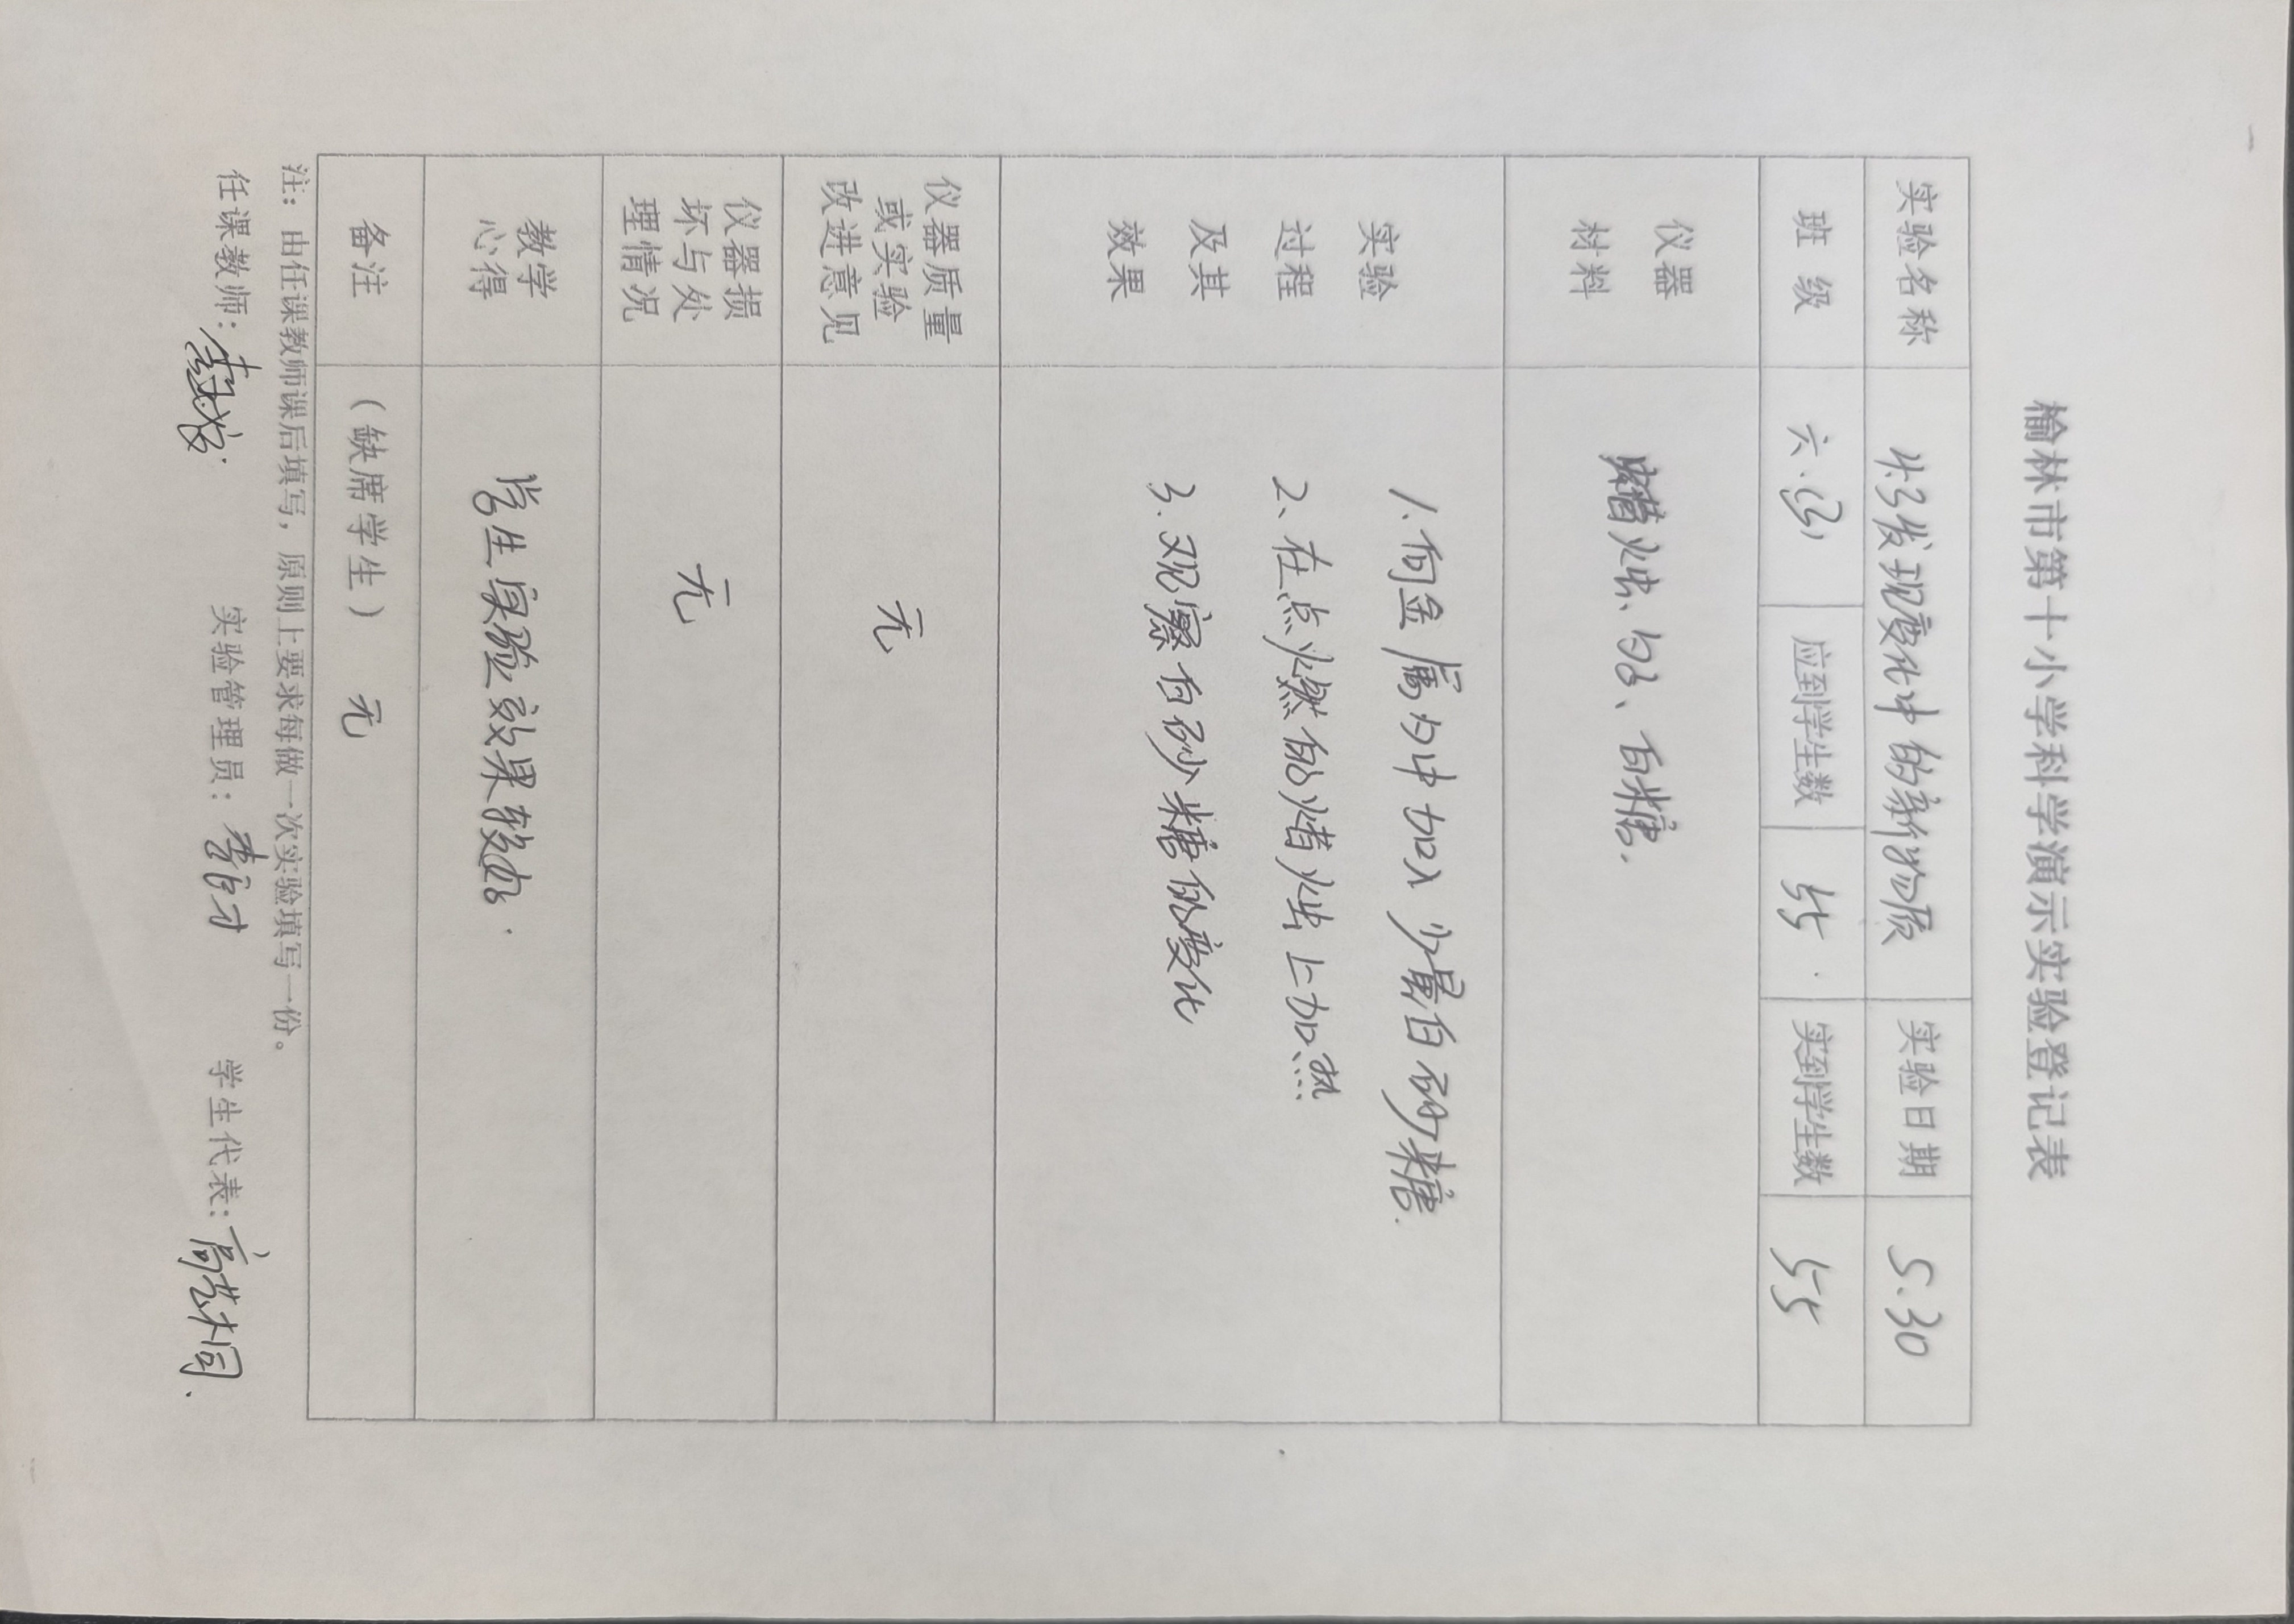 榆林市第十小学科学演示实验登记表
实验名称 4.3发现变化中的新物质 实验日期 5.30
班 级 六.(3) 应到学生数 55. 实到学生数 55
仪器材料 蜡烛、勺子、白糖.
实验过程及其效果
1.向金属勺中加入少量白砂糖.
2、在点燃的蜡烛上加热
3.观察白砂糖的变化
仪器质量或实验改进意见 无
仪器损坏与处理情况 无
教学心得 学生实验效果较好.
备注 (缺席学生) 无
注：由任课教师课后填写，原则上要求每做一次实验填写一份。
任课教师: 实验管理员: 学生代表: